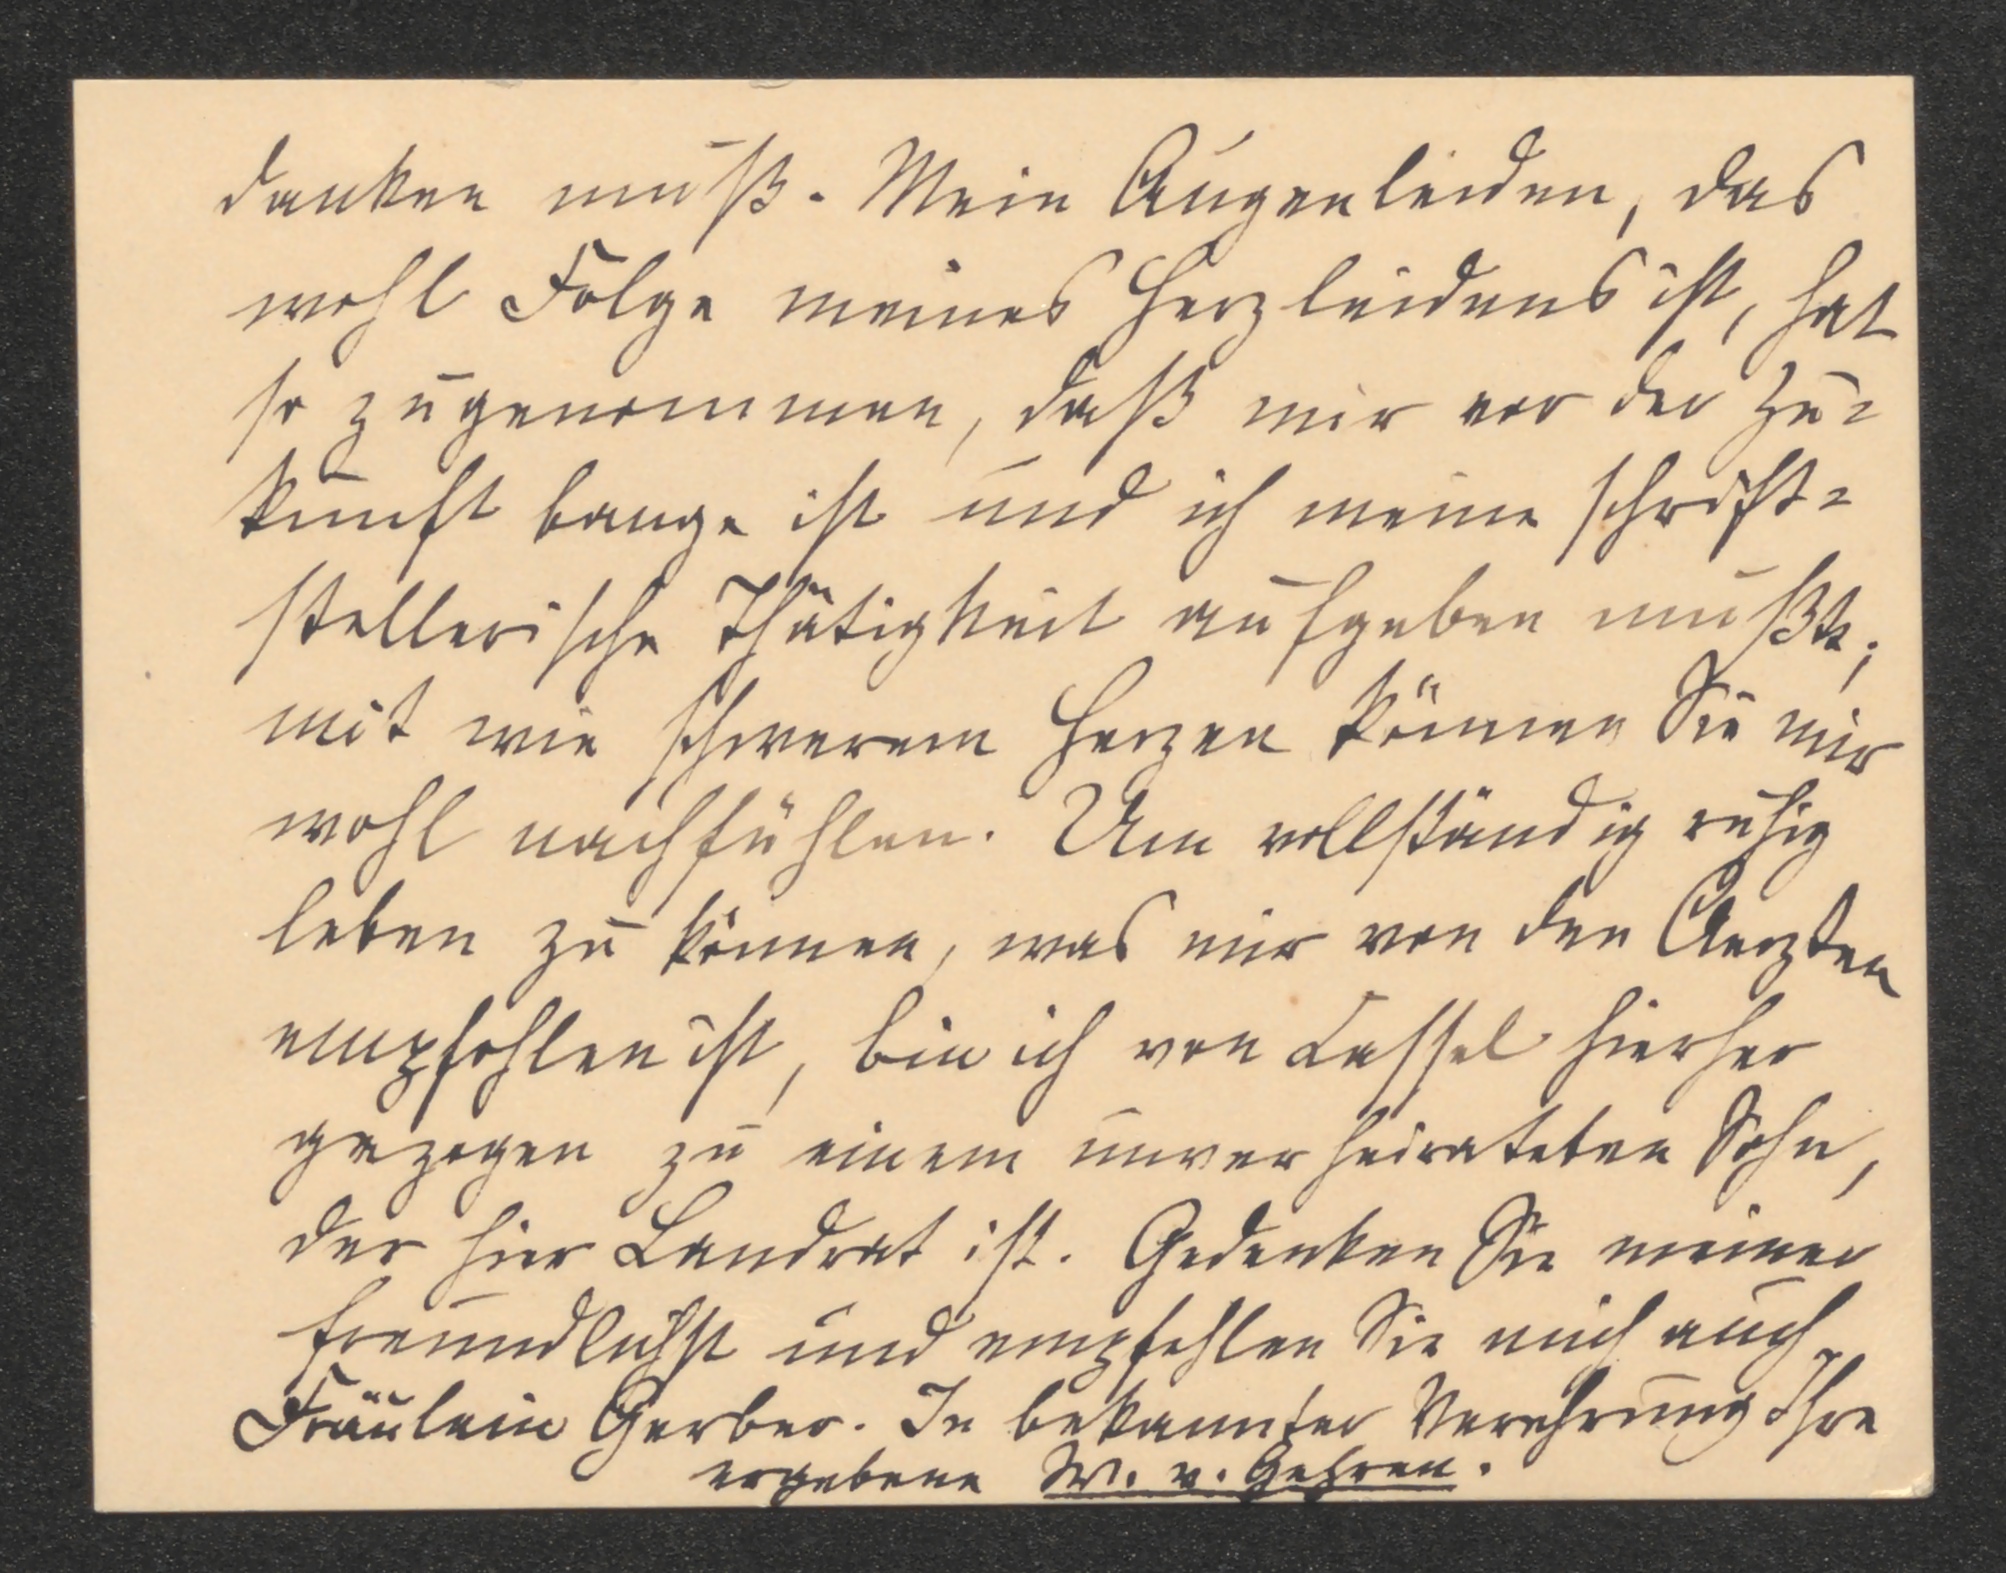 danken muß. Mein Augenleiden, das
wohl Folge meines Herzleidens ist, hat
so zugenommen, daß mir vor der Zu=
kunft bange ist und ich meine schrift=
stellerische Thätigkeit aufgeben mußte;
mit wie schwerem Herzen können Sie mir
wohl nachfühlen. Um vollständig ruhig
leben zu können, was mir von den Aerzten
empfohlen ist, bin ich von Cassel hierher
gezogen zu einem unverheirateten Sohn,
der hier Landrat ist. Gedenken Sie meiner
freundlichst und empfehlen Sie mich auch
Fräulein Gerber. In bekannter Verehrung Ihre
ergebene W. v. Gehren.